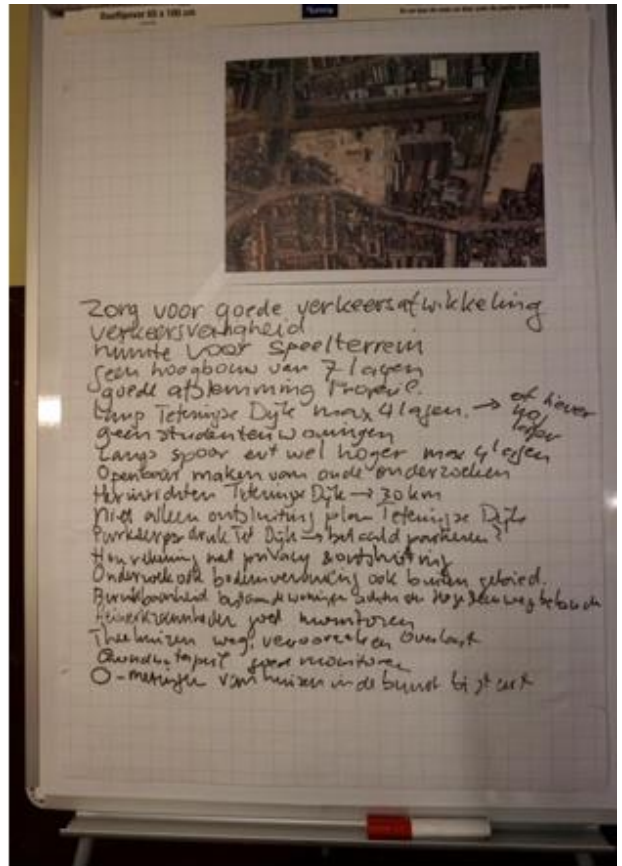 60 x 100 cm
Zorg voor goede verkeersafwikkeling
verkeersveiligheid
ruimte voor speelterrein
geen hoogbouw van 7 lagen
goede afstemming
Langs Teteringse Dijk max 4 lagen. → of liever nog lager
geen studentenwoningen
Langs spoor evt wel hoger max 4 lagen
Openbaar maken van oude onderzoeken
Herinrichten Teteringse Dijk → 30 km
Niet alleen ontsluiting plan Teteringse Dijk
Parkeerdruk Tet Dijk → betaald parkeren?
Hou rekening met privacy & ontsluiting
Onderzoek ook bodemvervuiling ook buiten gebied.
Bereikbaarheid bestaande woningen achter de
Heiwerkzaamheden goed monitoren
Theehuizen weg, veroorzaken overlast
goed monitoren
0-metingen van huizen in de buurt bij start